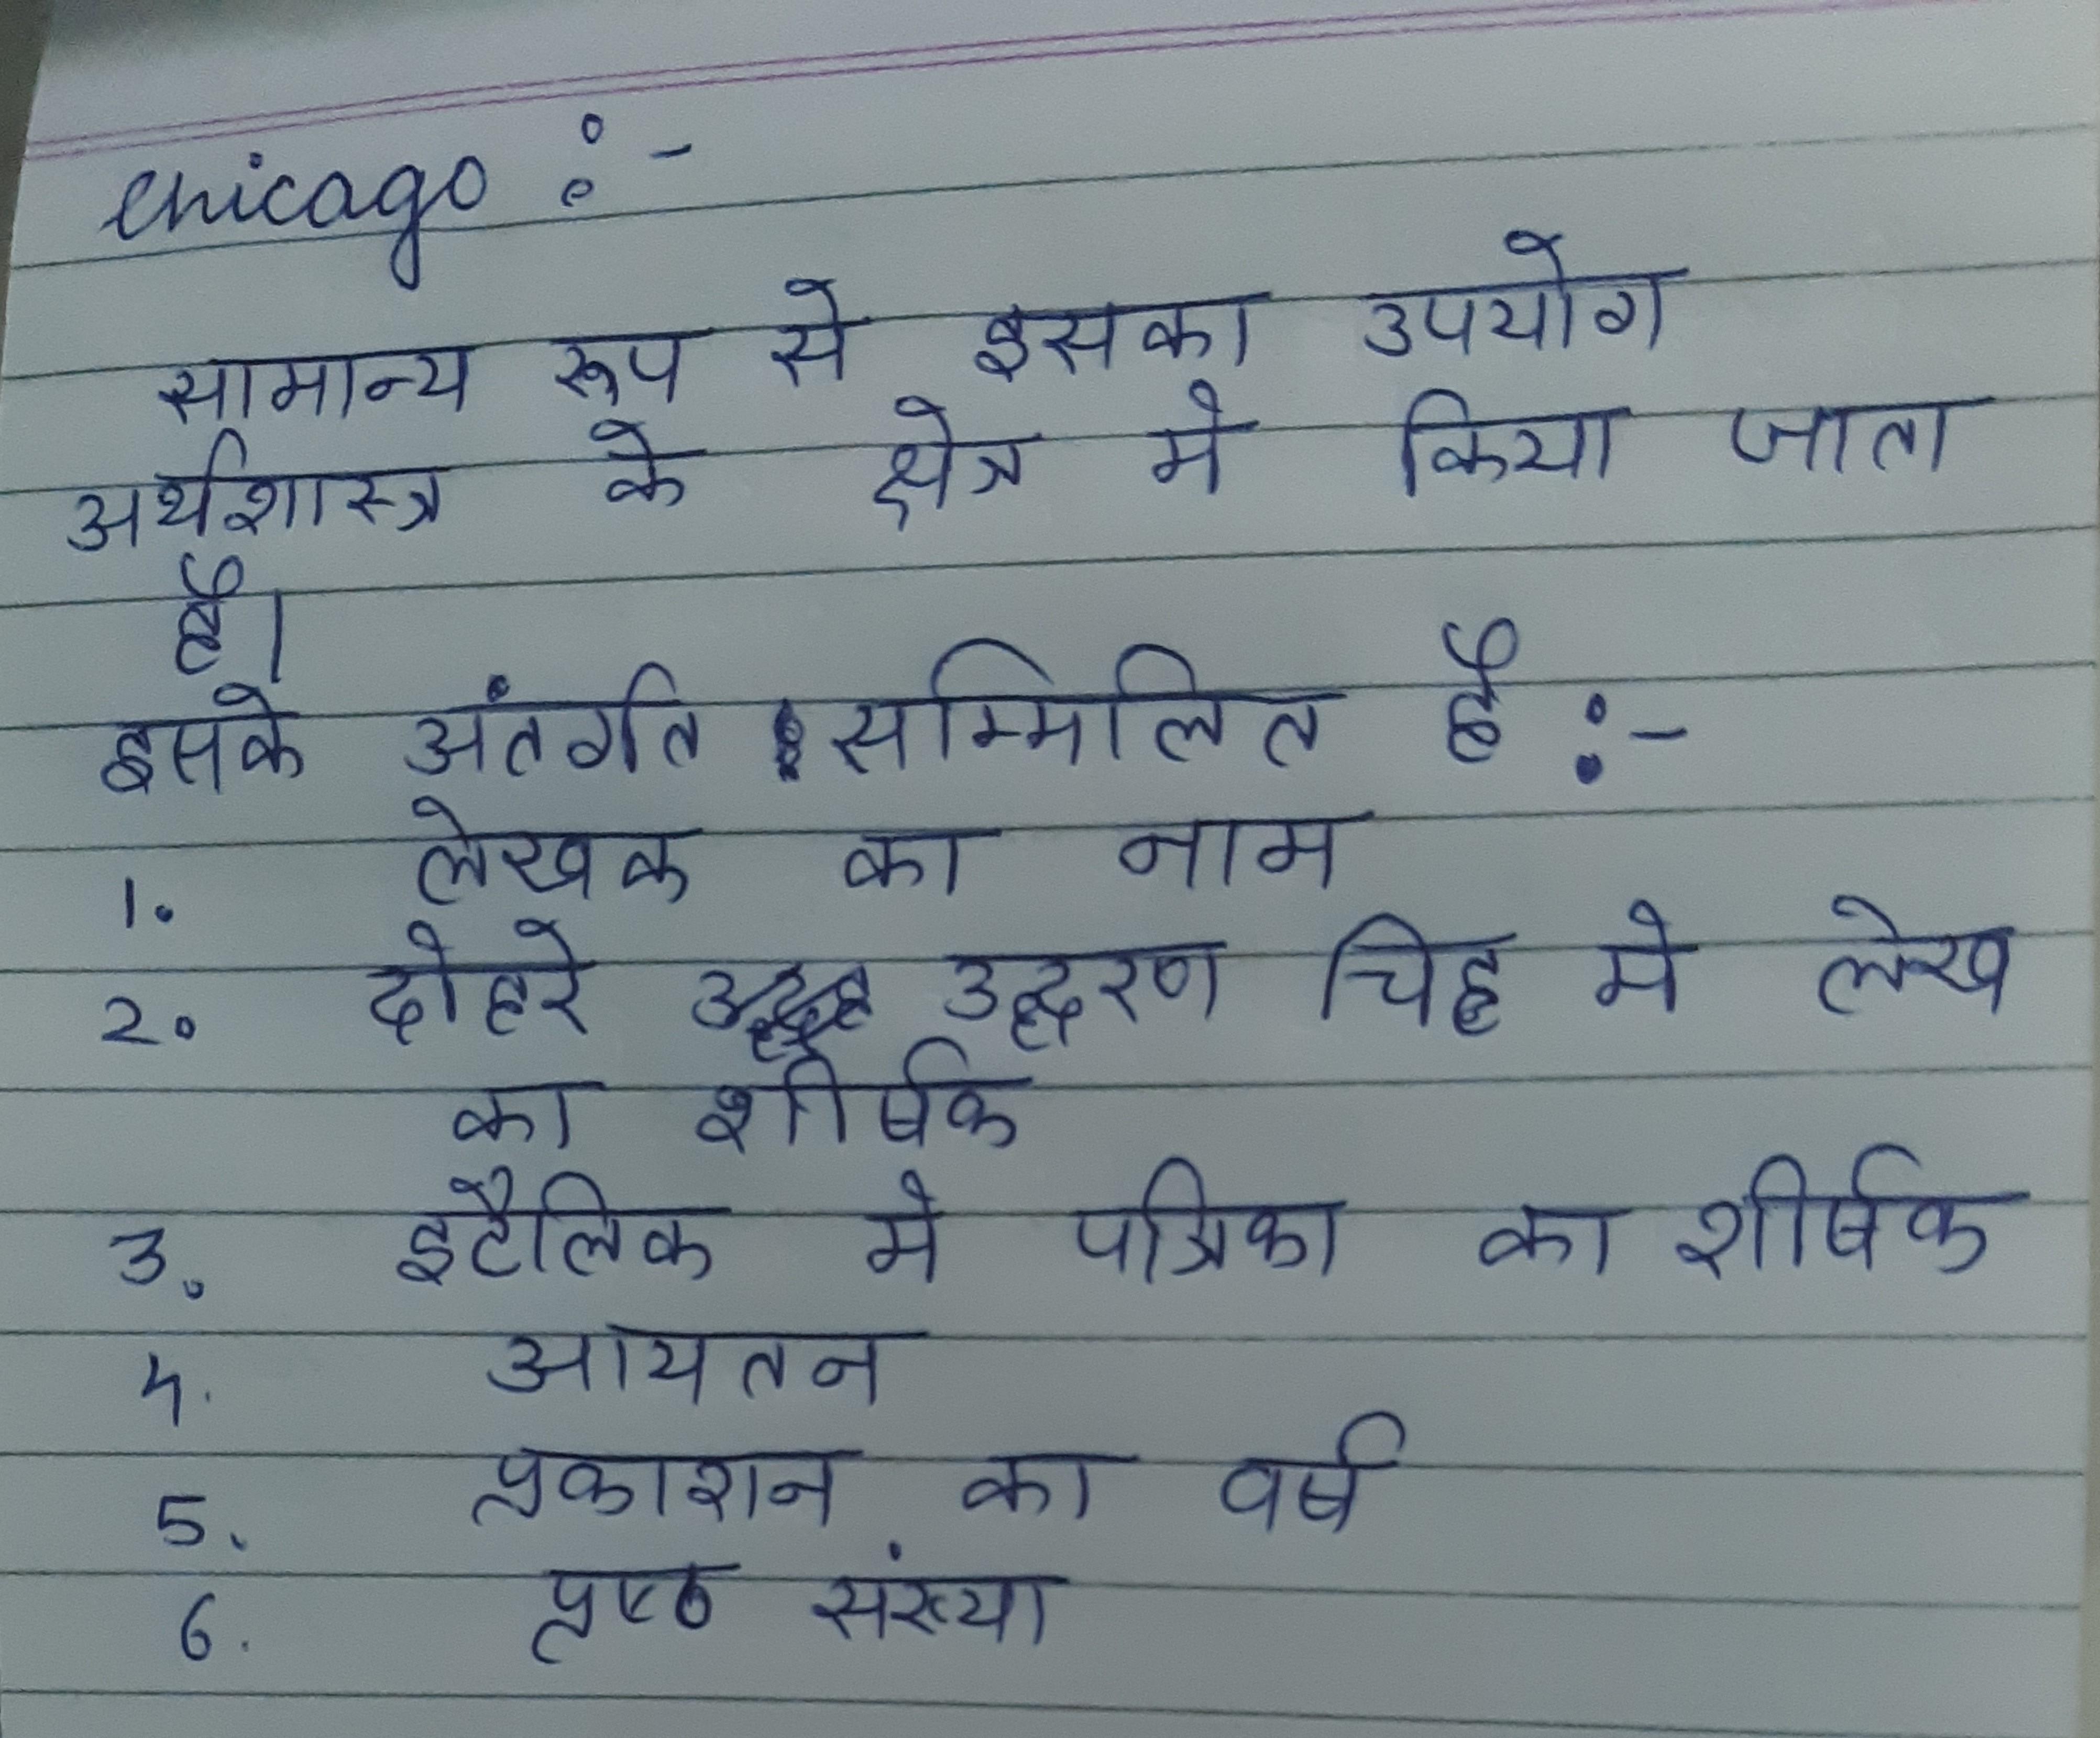 chicago :-
सामान्य रूप से इसका उपयोग
अर्थशास्त्र के क्षेत्र मे किया जाता
है।
इसके अंतर्गत सम्मिलित है :-
1. लेखक का नाम
2. दोहरे उद्धरण चिह्न मे लेख
का शीर्षक
3. इटैलिक मे पत्रिका का शीर्षक
4. आयतन
5. प्रकाशन का वर्ष
6. पृष्ठ संख्या